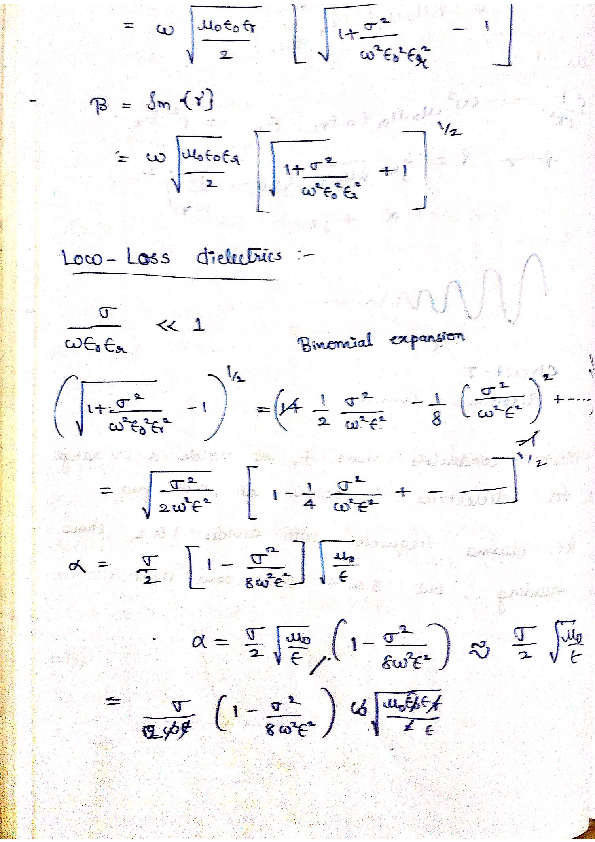 = ω √(μ₀ε₀εr / 2) [ √(1 + σ² / ω²ε₀²εr²) - 1 ]
- β = Im {γ}
= ω √(μ₀ε₀εr / 2) [ √(1 + σ² / ω²ε₀²εr²) + 1 ]^1/2
Low-Loss dielectrics :-
σ / ωε₀εr << 1
Binomial expansion
( √(1 + σ² / ω²ε₀²εr²) - 1 )^1/2 = (1 + 1/2 σ²/ω²ε² - 1/8 (σ²/ω²ε²)² + ---- - 1
= √(σ² / 2ω²ε²) [ 1 - 1/4 σ²/ω²ε² + - ---- ]^1/2
α = σ/2 [ 1 - σ²/8ω²ε² ] √(μ₀/ε)
α = σ/2 √(μ₀/ε) ( 1 - σ²/8ω²ε² ) ≈ σ/2 √(μ₀/ε)
= σ / 2ωε ( 1 - σ²/8ω²ε² ) ω √(μ₀ε₀εr / 2 ε)